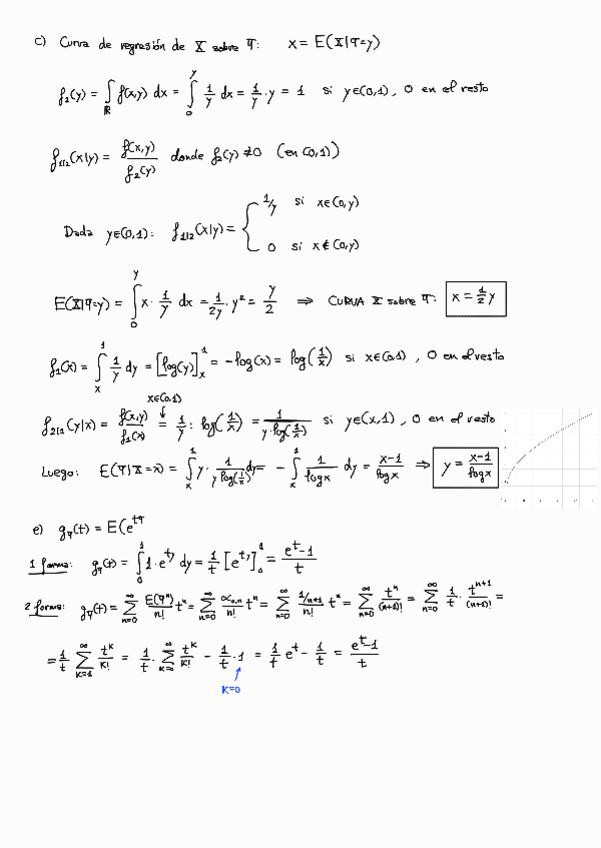 c) Curva de regresión de X sobre Y: x = E(X|Y=y)
f₂(y) = ∫_ℝ f(x,y) dx = ∫₀^y 1/y dx = 1/y · y = 1 si y∈(0,1), 0 en el resto
f₁|₂(x|y) = f(x,y)/f₂(y) donde f₂(y) ≠ 0 (en (0,1))
Dada y∈(0,1): f₁|₂(x|y) = { 1/y si x∈(0,y)
0 si x∉(0,y)
E(X|Y=y) = ∫₀^y x · 1/y dx = 1/2y · y² = y/2 ⇒ CURVA X sobre Y: x = 1/2 y
f₁(x) = ∫ₓ¹ 1/y dy = [log(y)]ₓ¹ = -log(x) = log(1/x) si x∈(0,1), 0 en el resto
x∈(0,1)
f₂|₁(y|x) = f(x,y)/f₁(x) = 1/y : log(1/x) = 1/(y·log(1/x)) si y∈(x,1), 0 en el resto
Luego: E(Y|X=x) = ∫ₓ¹ y · 1/(y log(1/x)) dy = -∫ₓ¹ 1/log x dy = (x-1)/log x ⇒ y = (x-1)/log x
e) g_Y(t) = E(e^{tY}
1 forma: g_Y(t) = ∫₀¹ 1·e^{ty} dy = 1/t [e^{ty}]₀¹ = (e^t-1)/t
2 forma: g_Y(t) = Σ_{n=0}^∞ E(Y^n)/n! t^n = Σ_{n=0}^∞ α_{0,n}/n! t^n = Σ_{n=0}^∞ (1/n+1)/n! t^n = Σ_{n=0}^∞ t^n/(n+1)! = Σ_{n=0}^∞ 1/t · t^{n+1}/(n+1)! =
= 1/t Σ_{k=1}^∞ t^k/k! = 1/t · Σ_{k=0}^∞ t^k/k! - 1/t · 1 = 1/t e^t - 1/t = (e^t-1)/t
k=0